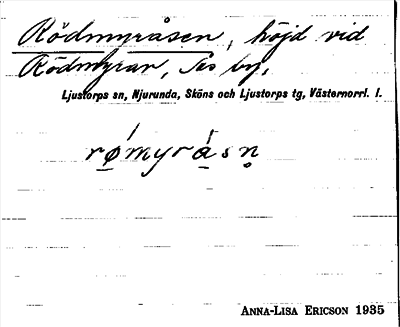 Rödmyråsen, höjd vid
Rödmyran, Ås by,
Ljustorps sn, Njurunda, Sköns och Ljustorps tg, Västernorrl. l.
rømyråsn̥
ANNA-LISA ERICSON 1935